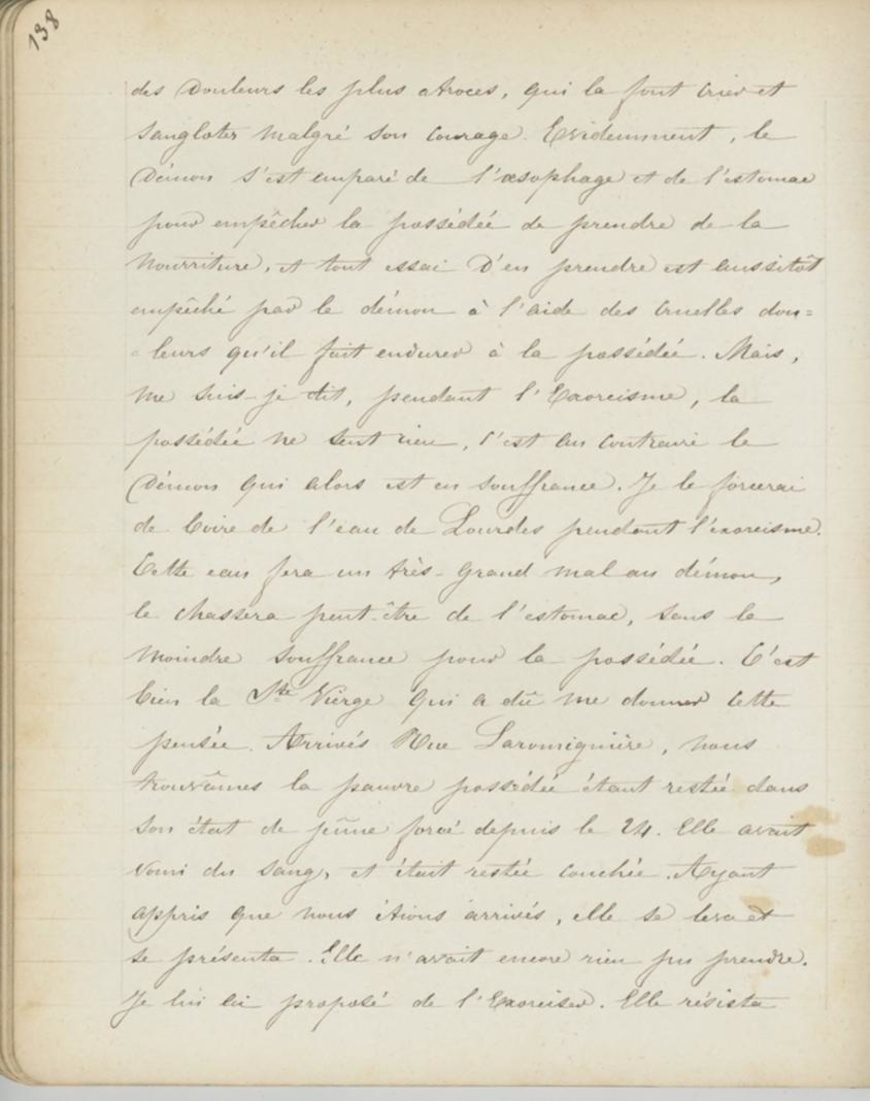 138
des Douleurs les plus atroces, qui la font crier et
sangloter malgré son courage. Evidemment, le
Démon s'est emparé de l'œsophage et de l'estomac
pour empêcher la possédée de prendre de la
nourriture, et tout essai d'en prendre est aussitôt
empêché par le démon à l'aide des cruelles dou=
leurs qu'il fait endurer à la possédée. Mais,
me suis-je dit, pendant l'Exorcisme, la
possédée ne sent rien, c'est au contraire le
Démon qui alors est en souffrance. Je le forcerai
de boire de l'eau de Lourdes pendant l'exorcisme.
Cette eau fera un très-grand mal au démon,
le chassera peut-être de l'estomac, sans la
moindre souffrance pour la possédée. C'est
bien la Ste Vierge qui a dû me donner cette
pensée. Arrivés Rue Laromiguière, nous
trouvâmes la pauvre possédée étant restée dans
son état de jeûne forcé depuis le 24. Elle avait
vomi du sang, et était restée couchée. Ayant
appris que nous étions arrivés, elle se leva et
se présenta. Elle n'avait encore rien pu prendre.
Je lui ai proposé de l'Exorciser. Elle résista